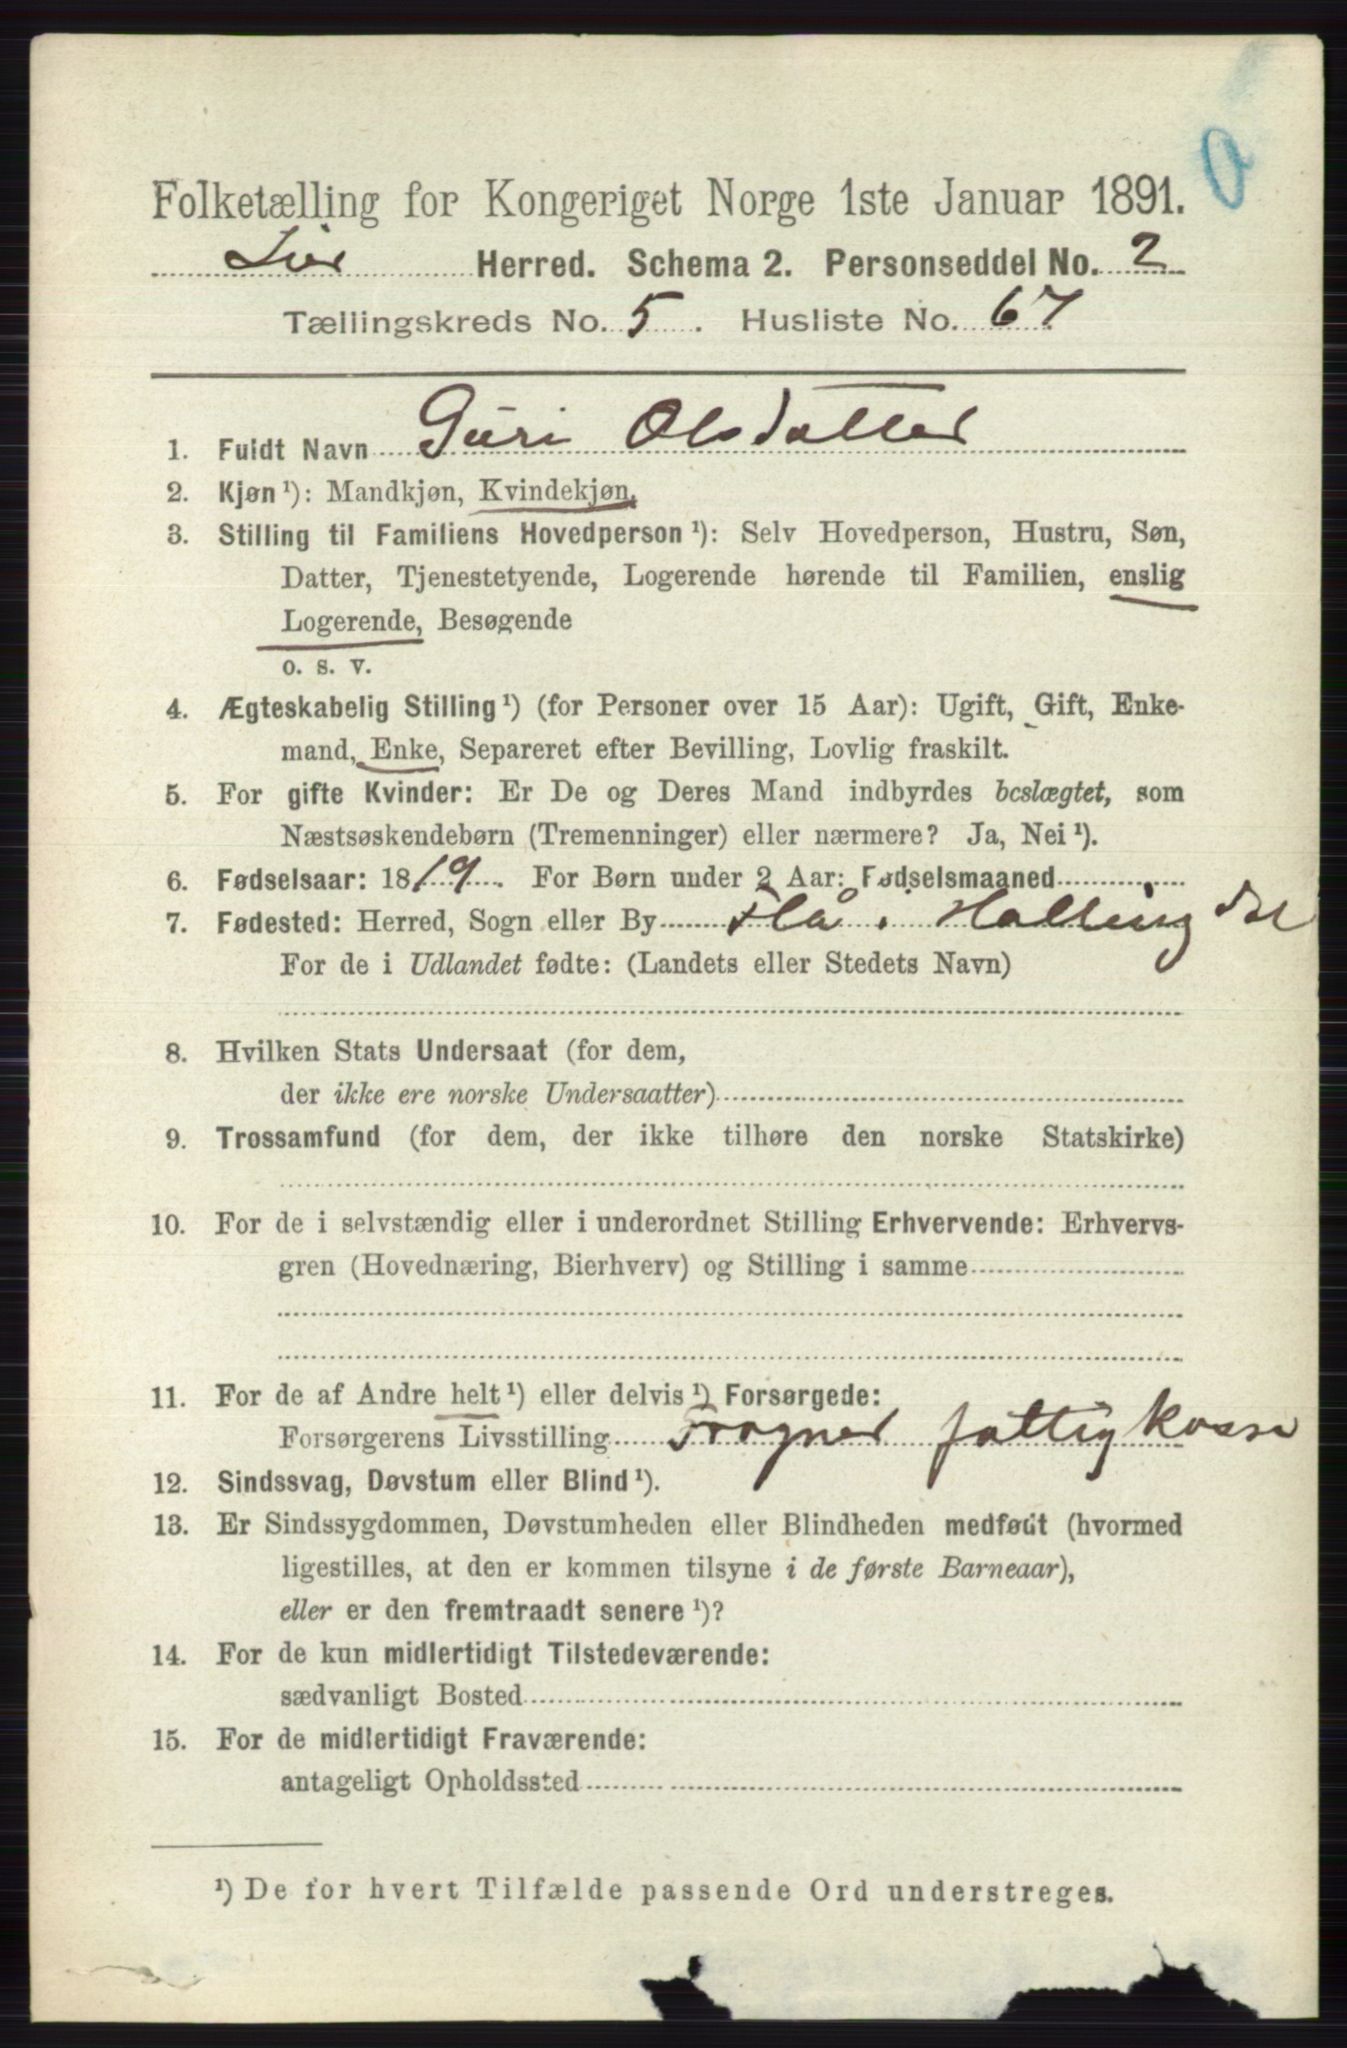 Folketælling for Kongeriget Norge 1ste Januar 1891.
Lier Herred. Schema 2. Personseddel No. 2
Tællingskreds No. 5. Husliste No. 67
1. Fuldt Navn Guri Olsdatter
2. Kjøn ¹): Mandkjøn, Kvindekjøn.
3. Stilling til Familiens Hovedperson ¹): Selv Hovedperson, Hustru, Søn,
Datter, Tjenestetyende, Logerende hørende til Familien, enslig
Logerende, Besøgende
o. s. v.
4. Ægteskabelig Stilling ¹) (for Personer over 15 Aar): Ugift, Gift, Enke-
mand, Enke, Separeret efter Bevilling, Lovlig fraskilt.
5. For gifte Kvinder: Er De og Deres Mand indbyrdes beslægtet, som
Næstsøskendebørn (Tremenninger) eller nærmere? Ja, Nei ¹).
6. Fødselsaar: 1819. For Børn under 2 Aar: Fødselsmaaned
7. Fødested: Herred, Sogn eller By Flå i Hallingdal
For de i Udlandet fødte: (Landets eller Stedets Navn)
8. Hvilken Stats Undersaat (for dem,
der ikke ere norske Undersaatter)
9. Trossamfund (for dem, der ikke tilhøre den norske Statskirke)
10. For de i selvstændig eller i underordnet Stilling Erhvervende: Erhvervs-
gren (Hovednæring, Bierhverv) og Stilling i samme
11. For de af Andre helt ¹) eller delvis ¹) Forsørgede:
Forsørgerens Livsstilling Frogner fattigkasse
12. Sindssvag, Døvstum eller Blind ¹).
13. Er Sindssygdommen, Døvstumheden eller Blindheden medfødt (hvormed
ligestilles, at den er kommen tilsyne i de første Barneaar),
eller er den fremtraadt senere ¹)?
14. For de kun midlertidigt Tilstedeværende:
sædvanligt Bosted
15. For de midlertidigt Fraværende:
antageligt Opholdssted
¹) De for hvert Tilfælde passende Ord understreges.